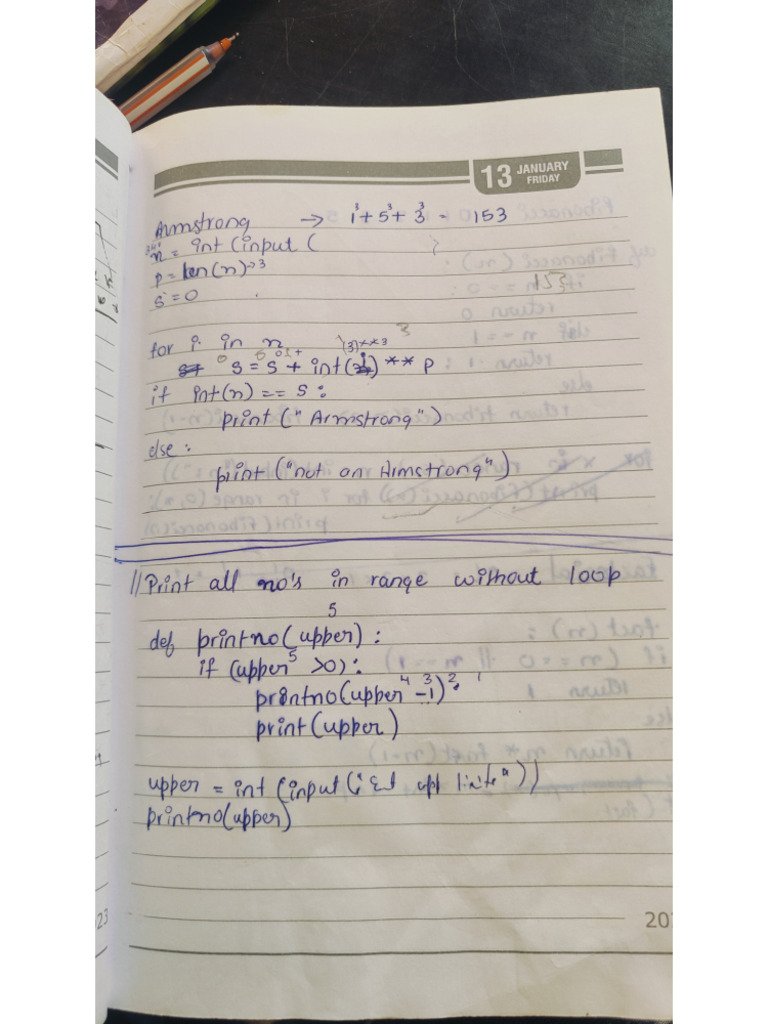 13 JANUARY
FRIDAY
Armstrong → 1³+5³+3³ = 153
n = int (input (
p = len(n)→3
s = 0
153
for i in n
3
(3)**3
s = s + int(i) ** p
if int(n) == s:
print ("Armstrong")
else:
print ("not an Armstrong")
//Print all no's in range without loop
5
def printno(upper):
if (upper⁵ >0):
printno(upper⁴ -1)³ ² ¹
print(upper)
upper = int (input (
printno(upper)
023
20